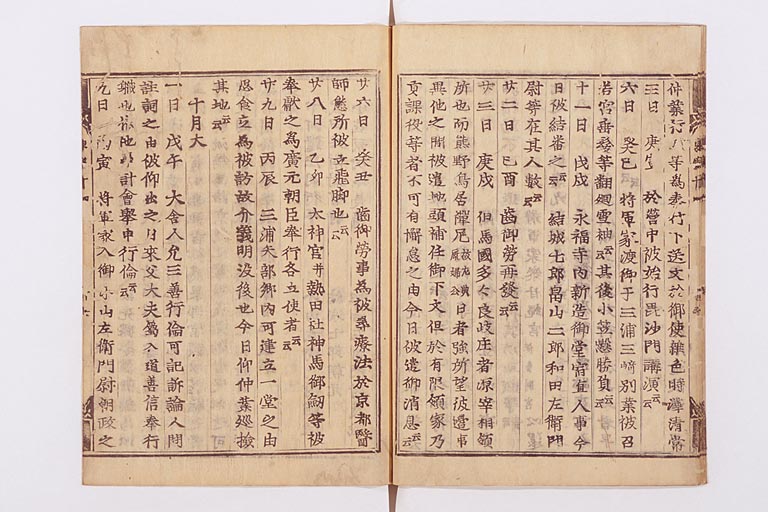 仲業行八等為奉行下送文於御使雜色時澤清常
三日　庚寅　於營中被始行毘沙門講演云云
六日　癸巳　將軍家渡御于三浦三崎別業被召
若宮垂髪等翻廻雪袖云云其後小笠懸勝負云云
十一日　戊戌　永福寺内新造御堂宿直人事今
日被結番之云云　結城七郎畠山二郎和田左衛門
尉等在其人數云云
廿二日　己酉　齒御勞再發云云
廿三日　庚戌　但馬國多々良岐庄者源宰相領
所也而熊野鳥居禪尼故左典厩姉公日者強所望彼遣事
異他之間被遣地頭補任御下文但於有限領家乃
貢課役等者不可有懈怠之由今日被遣御消息云云
廿六日　癸丑　齒御勞事為被尋療法於京都醫
師態所被立飛脚也云云
廿八日　乙卯　太神宮并熱田社神馬御劔等被
奉獻之為廣元朝臣奉行各立使者云云
廿九日　丙辰　三浦矢部郷内可建立一堂之由
思食立為被訪故介義明没後也今日仰仲業廵撿
其地云云
十月大
一日　戊午　大舍人允三善行倫可記訴論人問
註詞之由被仰出之日來父大夫屬入道善信奉行
職也依他所計會舉申行倫云云
九日　丙寅　將軍家入御小山左衛門尉朝政之